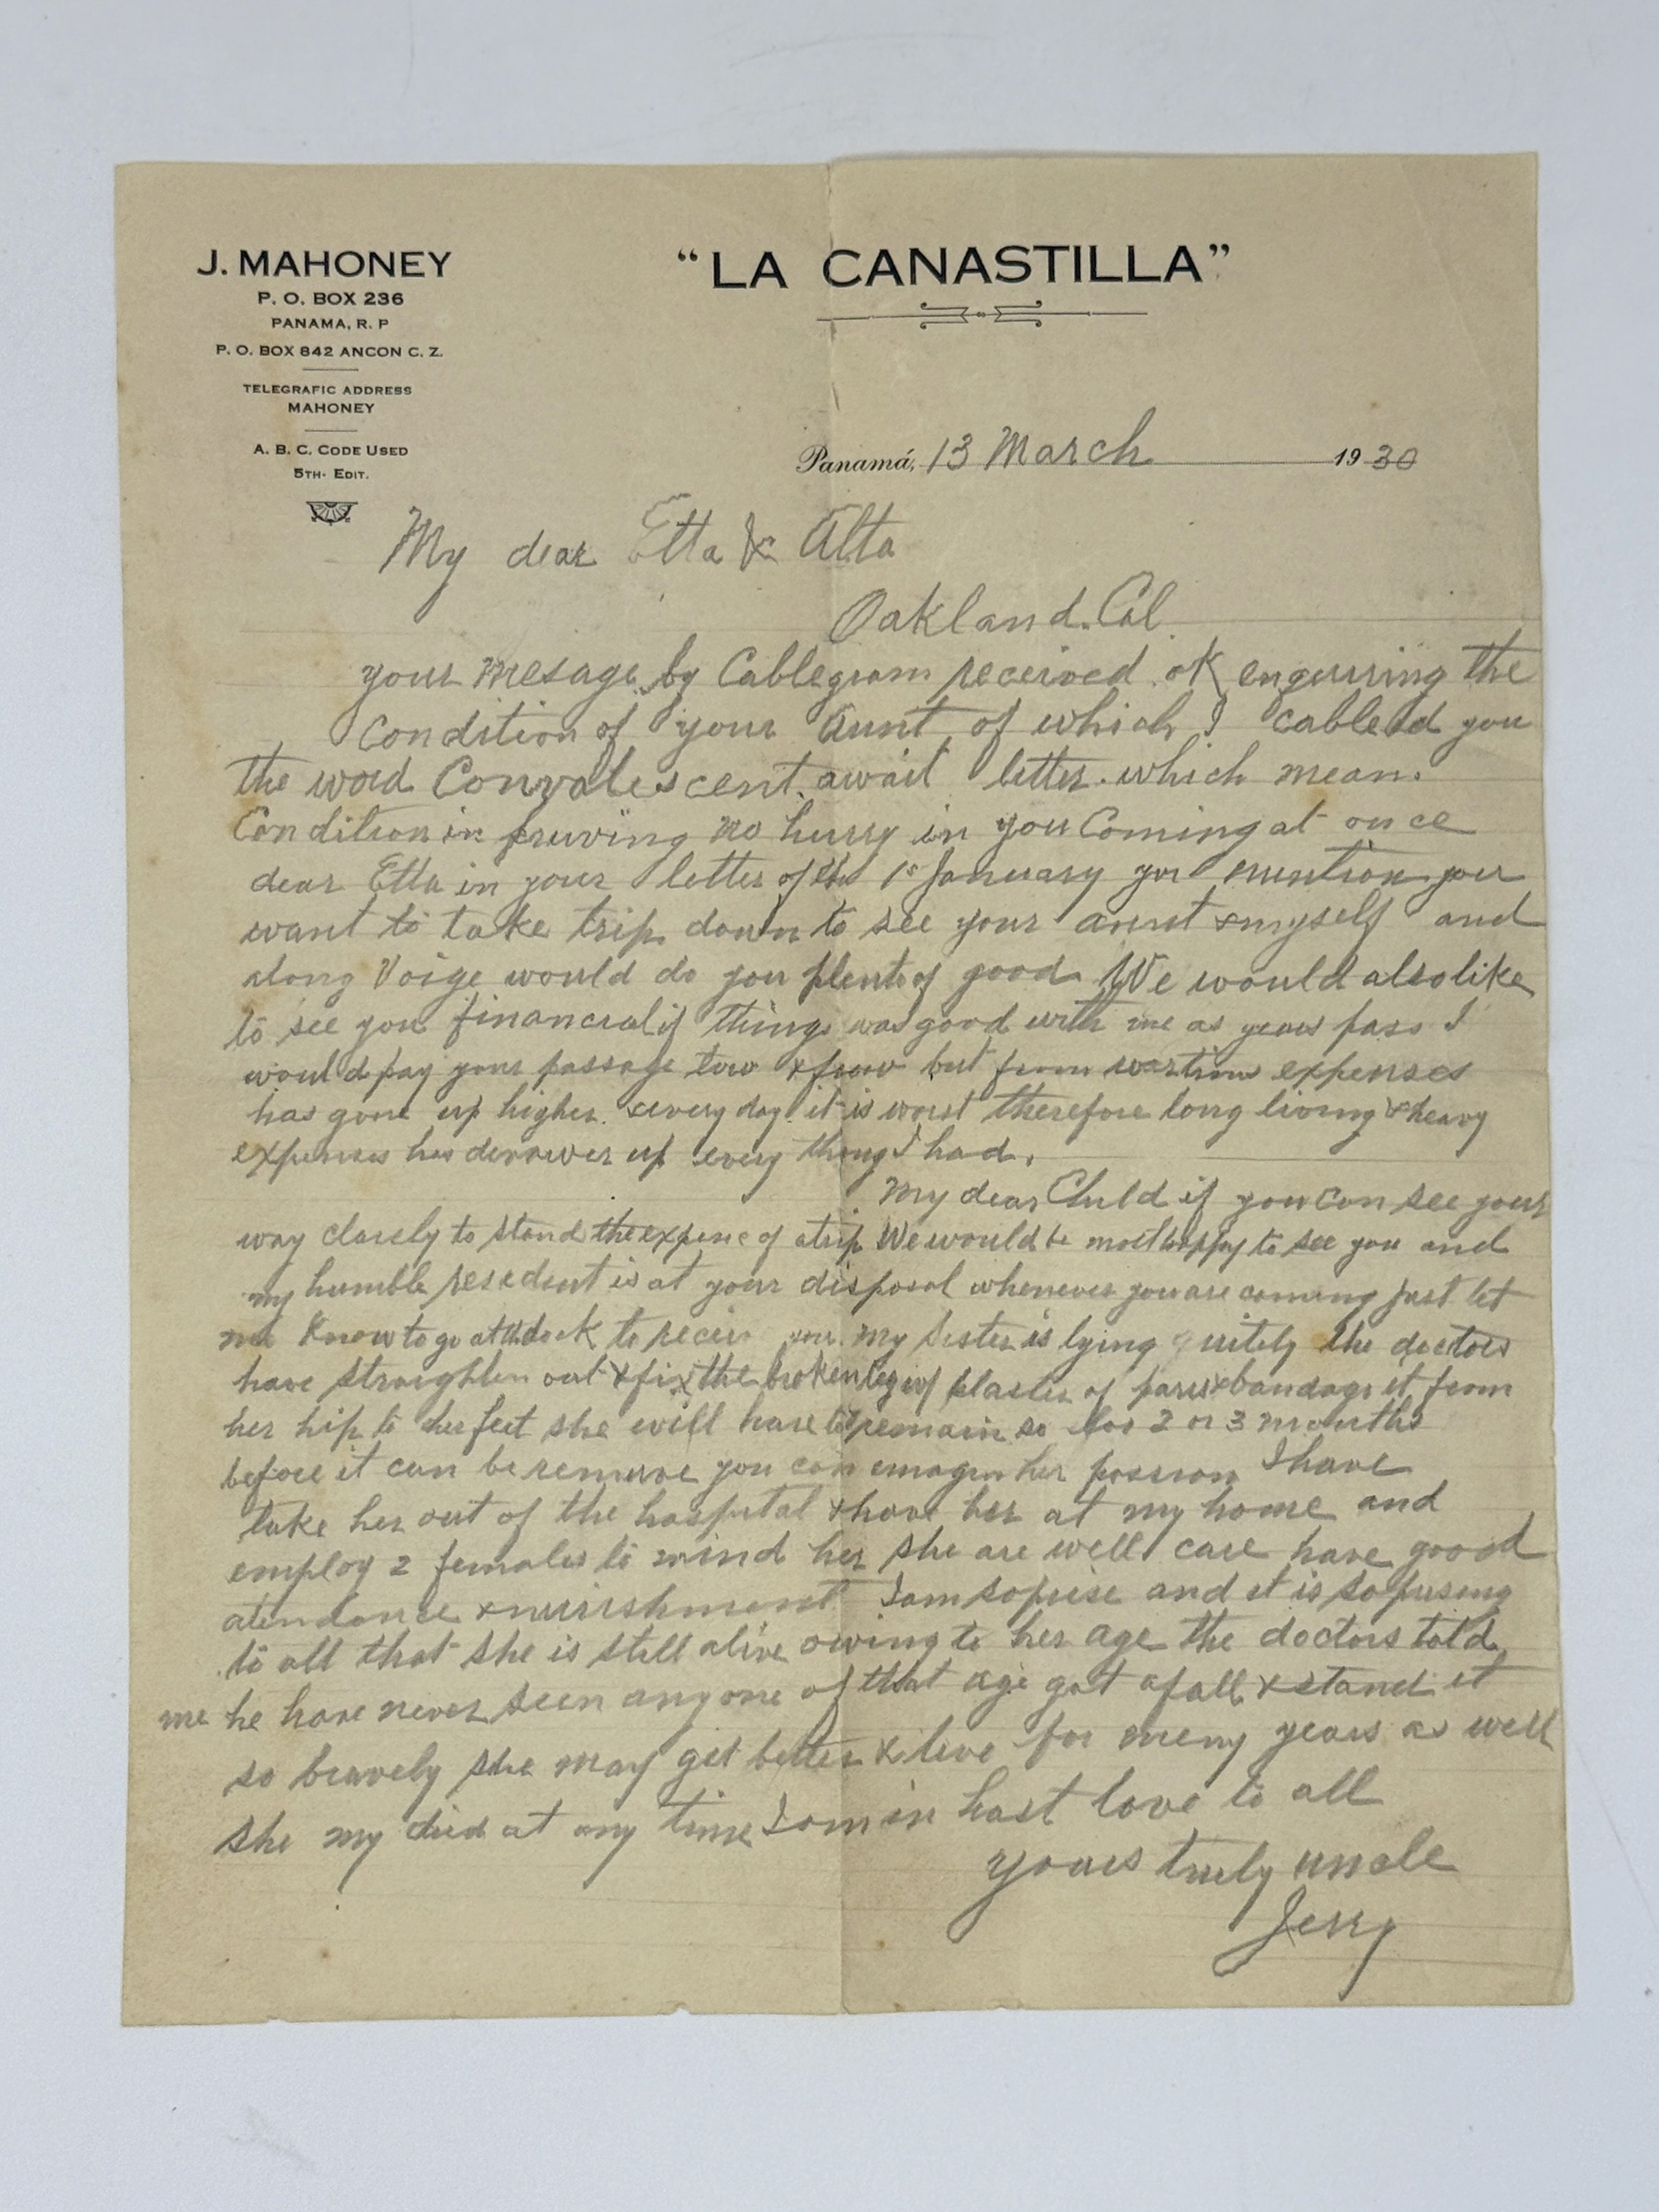 J. MAHONEY
P. O. BOX 236
PANAMA, R. P
P. O. BOX 842 ANCON C. Z.
TELEGRAFIC ADDRESS
MAHONEY
A. B. C. CODE USED
5TH- EDIT.
"LA CANASTILLA"
Panamá, 13 March 1930
My dear Etta & Alta
Oakland. Cal.
your mesage by Cablegram received ok enqurring the
Condition of your Aunt of which I cableld you
the word Convalescent await letter. which mean.
Condition im pruving no hurry in you Coming at once
dear Etta in your letter of the 1st January you mention you
want to take trip down to see your aunt & myself and
along Voige would do you plenty of good We would also like
to see you financialy if things was good with me as years pass I
would pay your passage tow & frow but from wartime expenses
has gone up higher. & every day it is worst therefore long living & heavy
expenses has devower up every thing I had.
My dear Child if you can see your
way clearly to stand the expense of a trip We would be most happy to see you and
my humble resedent is at your disposal whenever you are coming just let
me know to go at the dock to receiv you. my Sister is lying quitely the doctors
have straighten out & fix the broken leg in plaster of paris & bandage it from
her hip to her feet she will have to remain so for 2 or 3 months
before it can be remove you can emagin her possion I have
take her out of the hospital & have her at my home and
employ 2 females to mind her she are well care have good
atendance & nurrishment I am soprise and it is soprising
to all that she is still alive owing to her age the doctors told
me he have never seen anyone of that age got a fall & stand it
so bravely she may get better & live for meny years as well
she my died at any time I am in hast love to all
yours truly uncle
Jerry